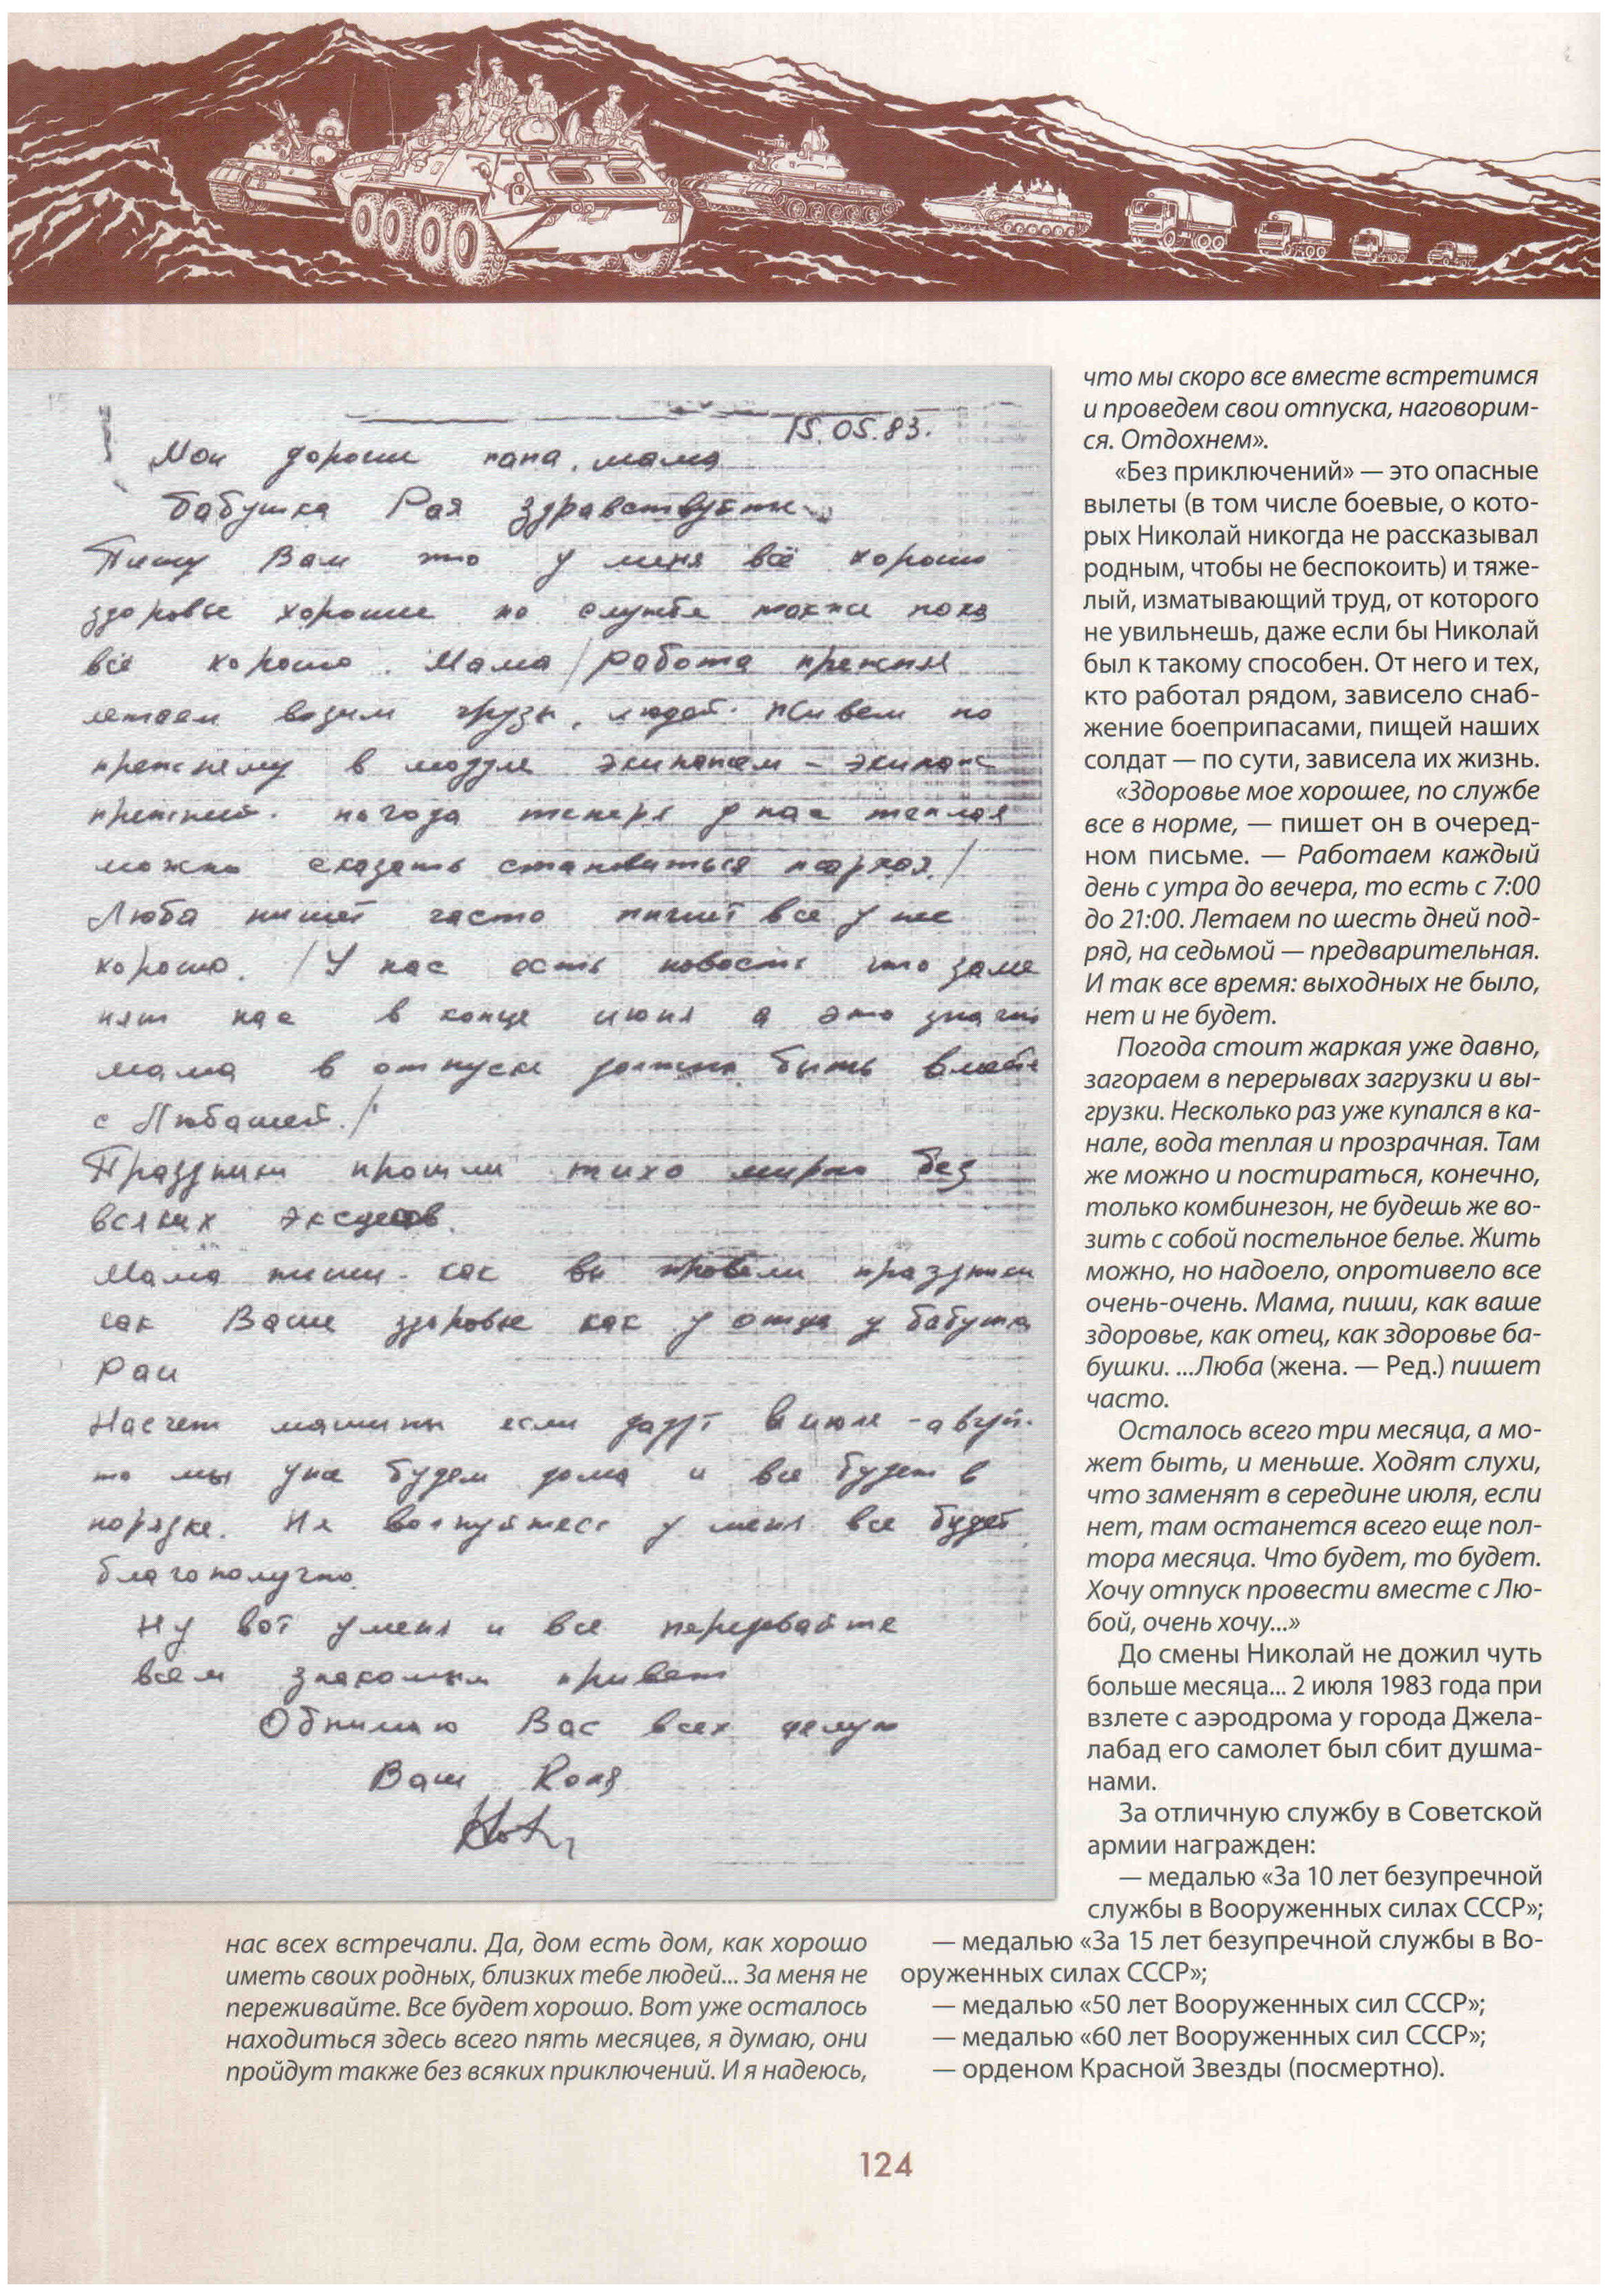 15.05.83.
Мои дорогие папа, мама
бабушка Рая здравствуйте
Пишу Вам что у меня всё хорошо
здоровье хорошее по службе также пока
всё хорошо. Мама / работа прежняя
летаем возим грузы, людей. Живем по
прежнему в модуле экипажем – экипаж
прежний. погода теперь у нас теплая
можно сказать становиться жаркая. /
Люба пишет часто пишет все у нее
хорошо. / У нас есть новость что заме
нят нас в конце июня а это значит
мама в отпуске должны быть вместе
с Любашей. /
Праздники прошли тихо мирно без
всяких эксцесов.
Мама пиши как вы провели праздники
как Ваше здоровье как у отца у бабушки
Раи
Насчет машины если дадут в июле - август.
то мы уже будем дома и все будет в
порядке. Не волнуйтесь у меня все будет
благополучно.
Ну вот у меня и все передавайте
всем знакомым привет
Обнимаю Вас всех целую
Ваш Коля
нас всех встречали. Да, дом есть дом, как хорошо
иметь своих родных, близких тебе людей... За меня не
переживайте. Все будет хорошо. Вот уже осталось
находиться здесь всего пять месяцев, я думаю, они
пройдут также без всяких приключений. И я надеюсь,
что мы скоро все вместе встретимся
и проведем свои отпуска, наговорим-
ся. Отдохнем».
«Без приключений» — это опасные
вылеты (в том числе боевые, о кото-
рых Николай никогда не рассказывал
родным, чтобы не беспокоить) и тяже-
лый, изматывающий труд, от которого
не увильнешь, даже если бы Николай
был к такому способен. От него и тех,
кто работал рядом, зависело снаб-
жение боеприпасами, пищей наших
солдат — по сути, зависела их жизнь.
«Здоровье мое хорошее, по службе
все в норме, — пишет он в очеред-
ном письме. — Работаем каждый
день с утра до вечера, то есть с 7:00
до 21:00. Летаем по шесть дней под-
ряд, на седьмой — предварительная.
И так все время: выходных не было,
нет и не будет.
Погода стоит жаркая уже давно,
загораем в перерывах загрузки и вы-
грузки. Несколько раз уже купался в ка-
нале, вода теплая и прозрачная. Там
же можно и постираться, конечно,
только комбинезон, не будешь же во-
зить с собой постельное белье. Жить
можно, но надоело, опротивело все
очень-очень. Мама, пиши, как ваше
здоровье, как отец, как здоровье ба-
бушки. ...Люба (жена. — Ред.) пишет
часто.
Осталось всего три месяца, а мо-
жет быть, и меньше. Ходят слухи,
что заменят в середине июля, если
нет, там останется всего еще пол-
тора месяца. Что будет, то будет.
Хочу отпуск провести вместе с Лю-
бой, очень хочу...»
До смены Николай не дожил чуть
больше месяца... 2 июля 1983 года при
взлете с аэродрома у города Джела-
лабад его самолет был сбит душма-
нами.
За отличную службу в Советской
армии награжден:
— медалью «За 10 лет безупречной
службы в Вооруженных силах СССР»;
— медалью «За 15 лет безупречной службы в Во-
оруженных силах СССР»;
— медалью «50 лет Вооруженных сил СССР»;
— медалью «60 лет Вооруженных сил СССР»;
— орденом Красной Звезды (посмертно).
124